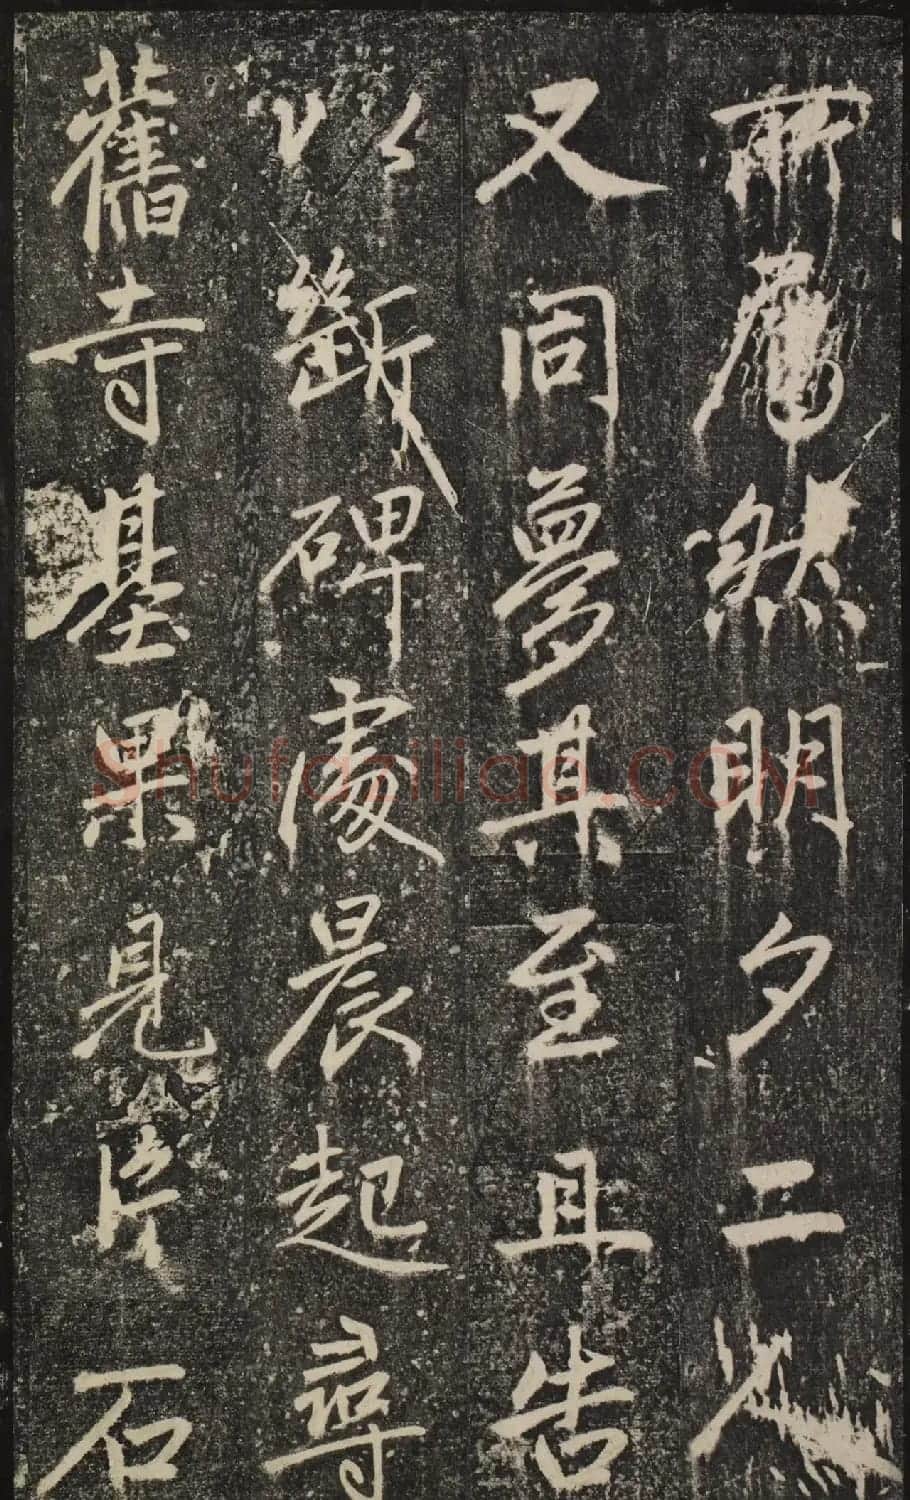 所属然明夕二人
又同夢其至且告
以斷碑處晨起尋
舊寺基果見片石
Shufaziliao.COM